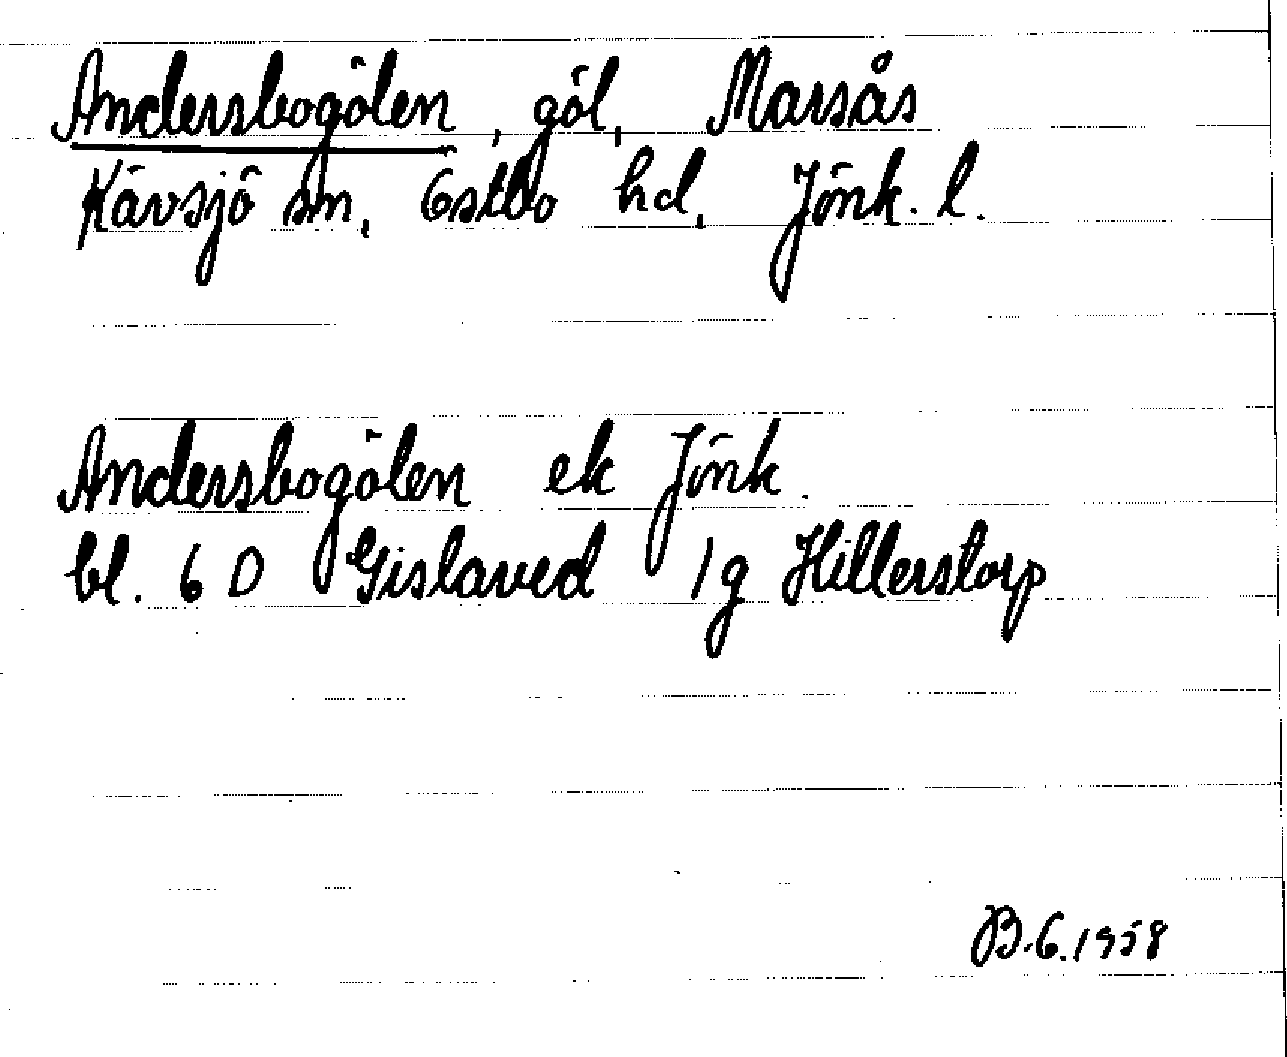 Andersbogölen, göl, Marsås
Kävsjö sn, Östbo hd, Jönk. l.
Andersbogölen ek Jönk.
bl. 6 D Gislaved 1g Hillerstorp
B.G. 1958